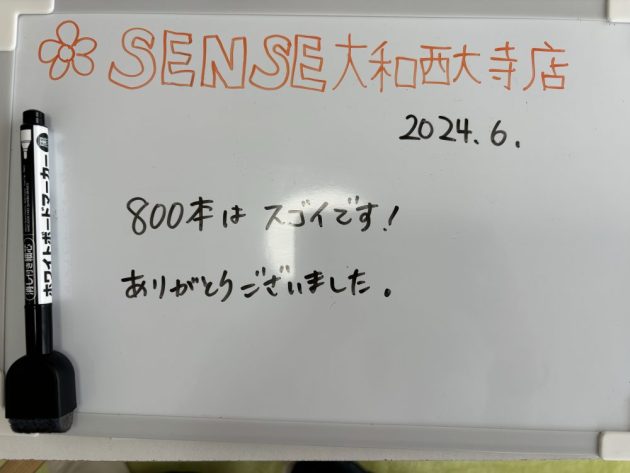 SENSE大和西大寺店
2024.6.
800本は スゴイです!
ありがとうございました.
ホワイトボードマーカー